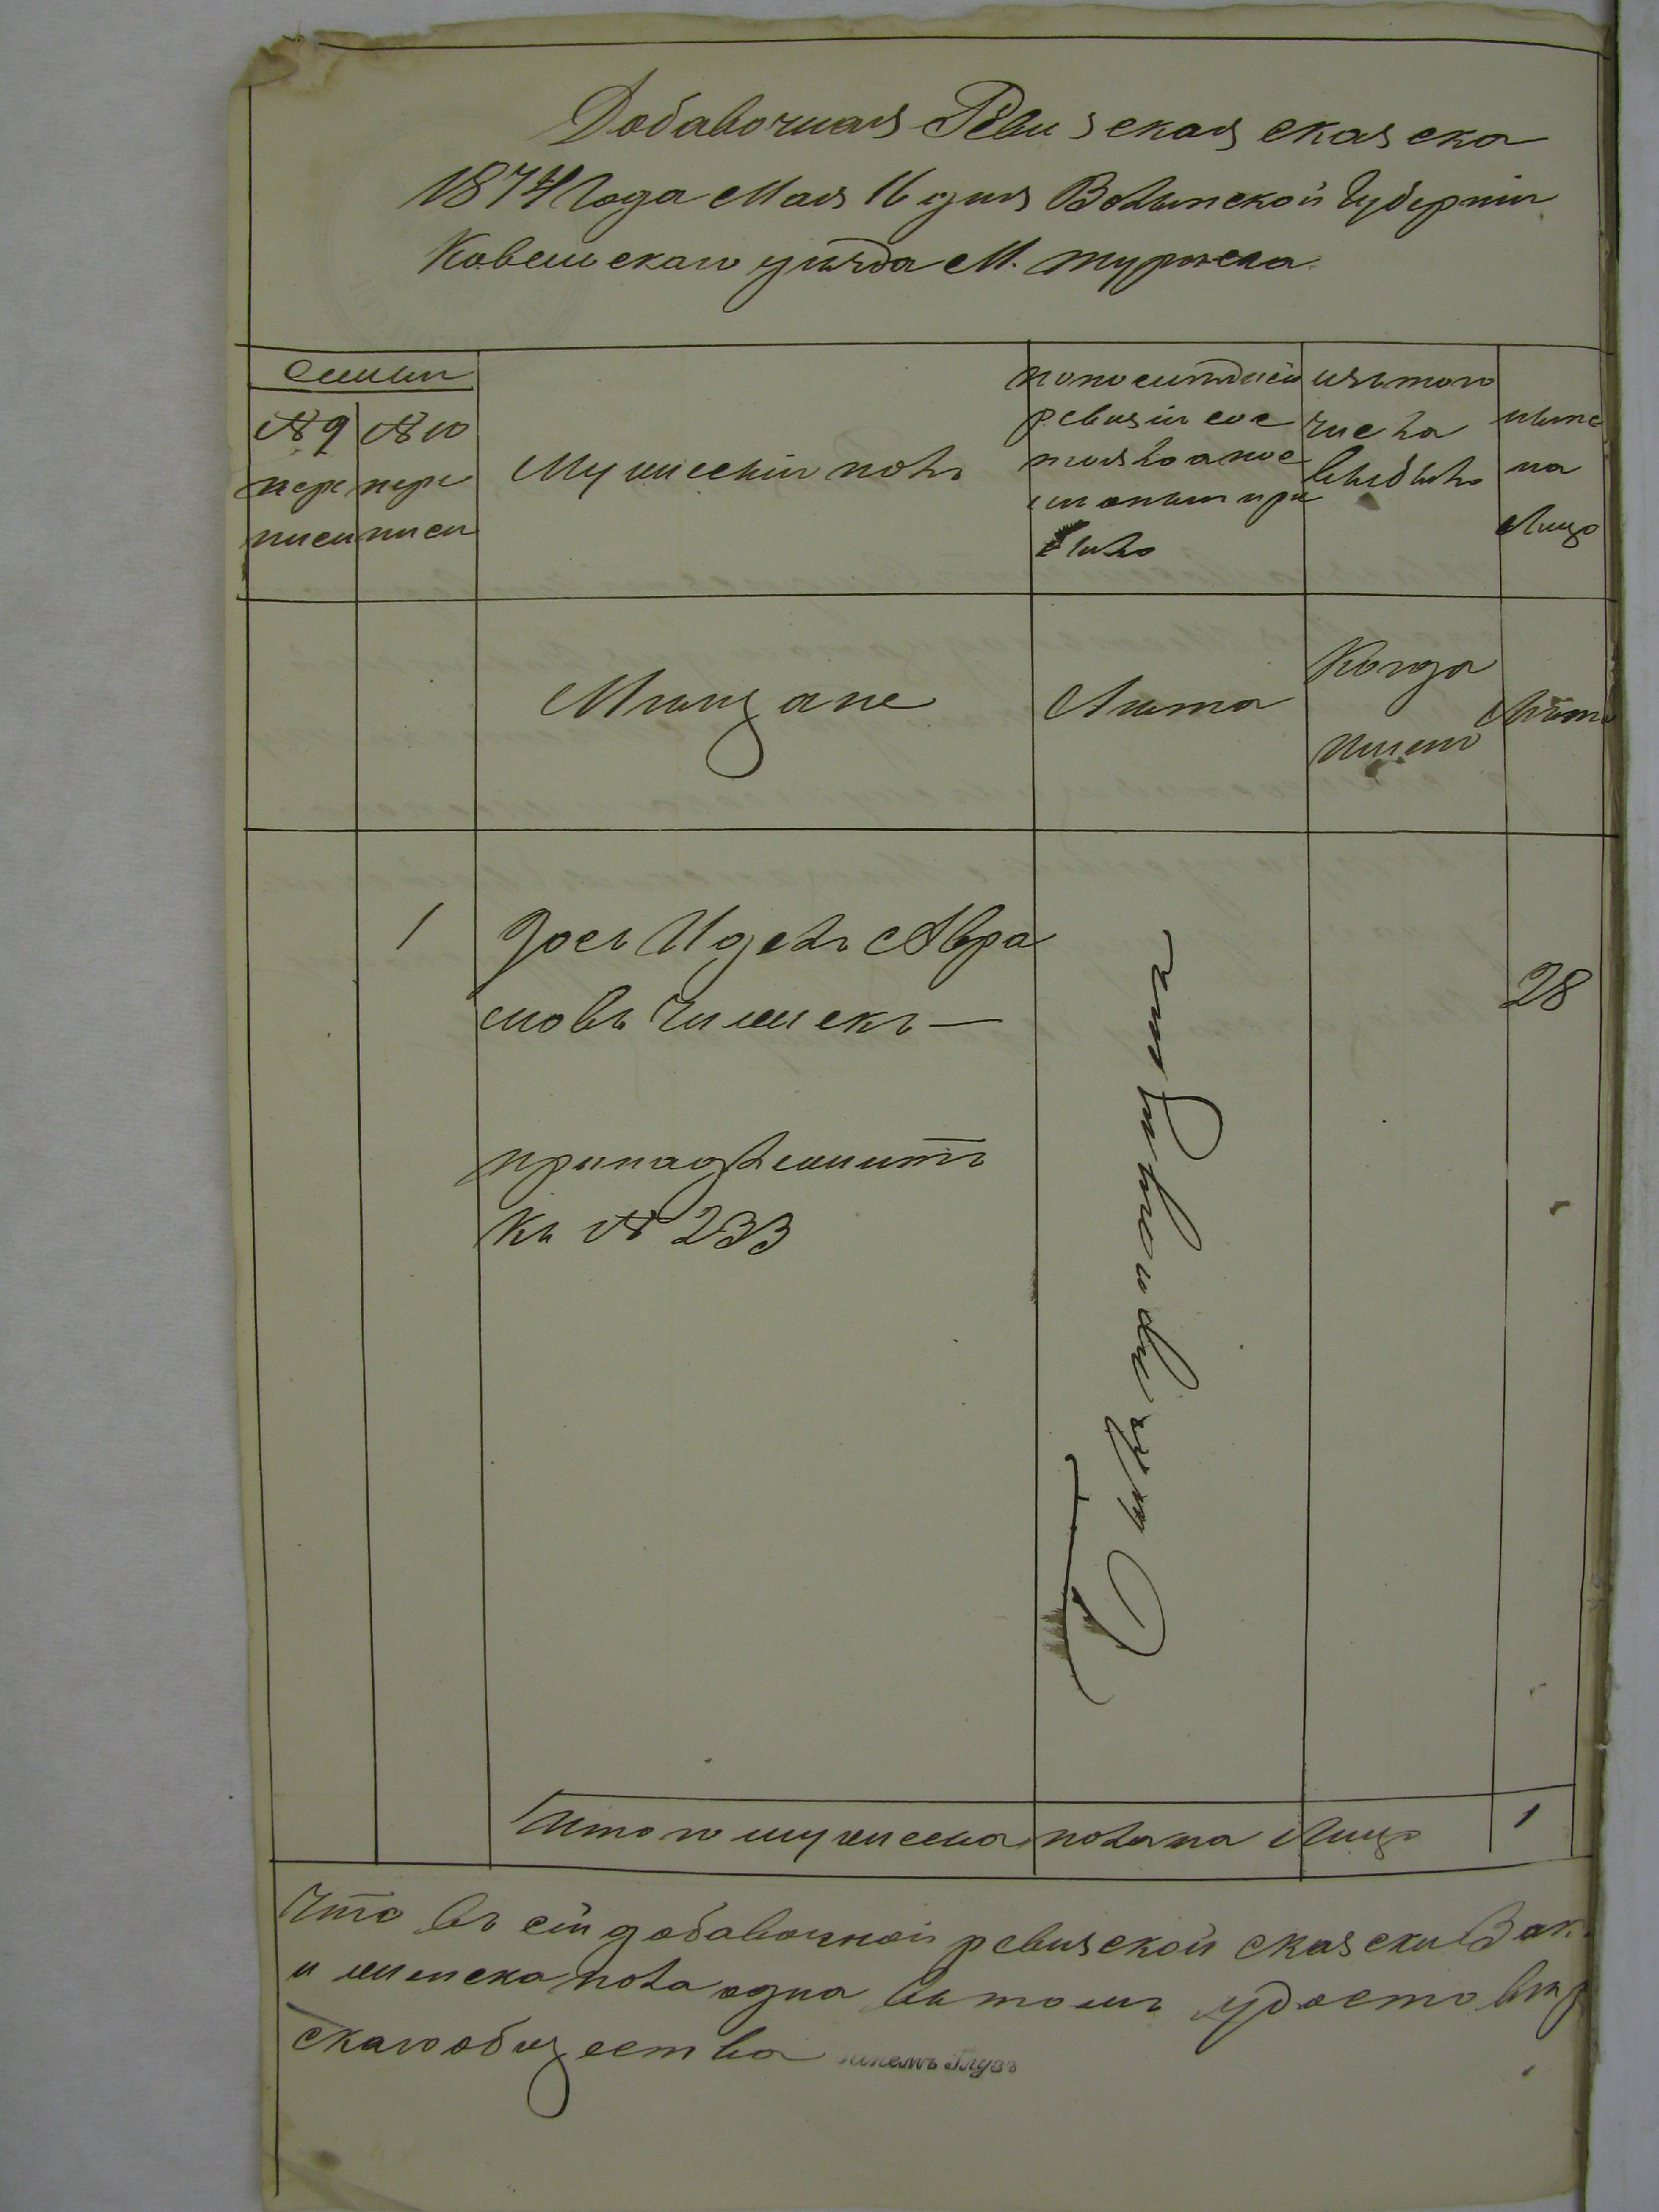 Добавочная Ревизская сказка
1874 Года Мая 16 дня Волынской Губерніи
Ковельскаго уѣзда М. турійска
Семьи
№ 9 пере писи
№ 10 пере писи
Мужескій полъ
по последней
ревизіи сос
тояло а пос
ле оныи при
было
изъ того
числа
выбыло
ныне
на
Лицо
Мещане
Лѣта
Когда
имено
Лѣта
1
Іось Идель Авра
мовъ Чижикъ —
28
принадлежитъ
къ № 233
Итого мужеска пола на Лицо 1
Что въ сей добавочной ревизской сказски
и женска пола одна въ томъ удостовѣр
скаго общества